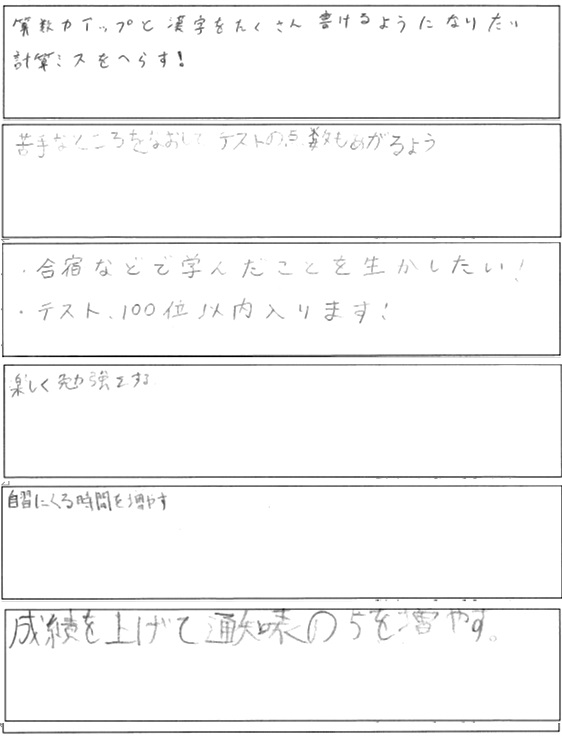 算数力アップと漢字をたくさん書けるようになりたい
計算ミスをへらす!
苦手なところをなおして テストの点数もあがるよう
・合宿などで学んだことを生かしたい!
・テスト、100位以内入ります!
楽しく勉強をする
自習にくる時間を増やす
成績を上げて通知味の5を増やす。